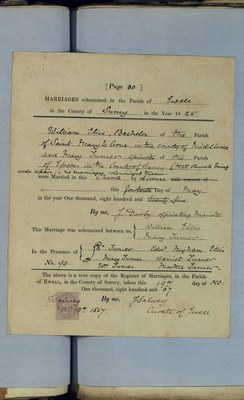 [Page 30]
MARRIAGES solemnized in the Parish of Ewell
in the County of Surrey in the Year 1825
William Ellis, Bachelor of the Parish
of Saint Mary le bone in the county of Middlesex
and Mary Turner Spinster of the Parish
of Epsom in the County of Surrey
were Married in this Church by
this Day of May
in the year One thousand, eight hundred and twenty five
By me, J. Darby officiating Minister
This Marriage was solemnized between us, William Ellis
Mary Turner
In the Presence of Turner
Mary Turner Harriet Turner
No. 90. Wm Turner Martha Turner
The above is a true copy of the Register of Marriages, in the Parish
of EWELL, in the County of Surrey, taken this 19th day of Oct
One thousand, eight hundred and 67
By me,
1867 Curate of Ewell